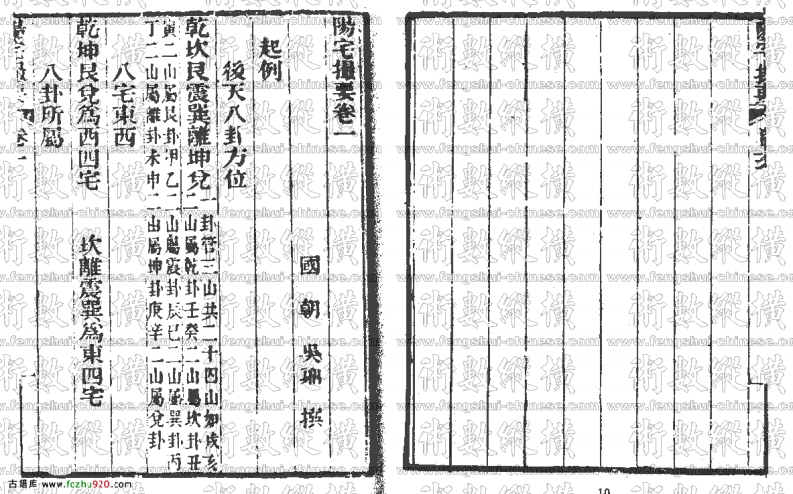 陽宅撮要卷一
國朝 吳鼒 撰
起例
後天八卦方位
乾坎艮震巽離坤兌
一卦管三山共二十四山如戌亥
二山屬乾卦壬癸二山屬坎卦丑
寅二山屬艮卦甲乙二山屬震卦辰巳二山屬巽卦丙
丁二山屬離卦未申二山屬坤卦庚辛二山屬兌卦
八宅東西
乾坤艮兌爲西四宅 坎離震巽爲東四宅
八卦所屬
卷一
10
術數縱橫
www.fengshui-chinese.com
古籍库 www.fczhu920.com